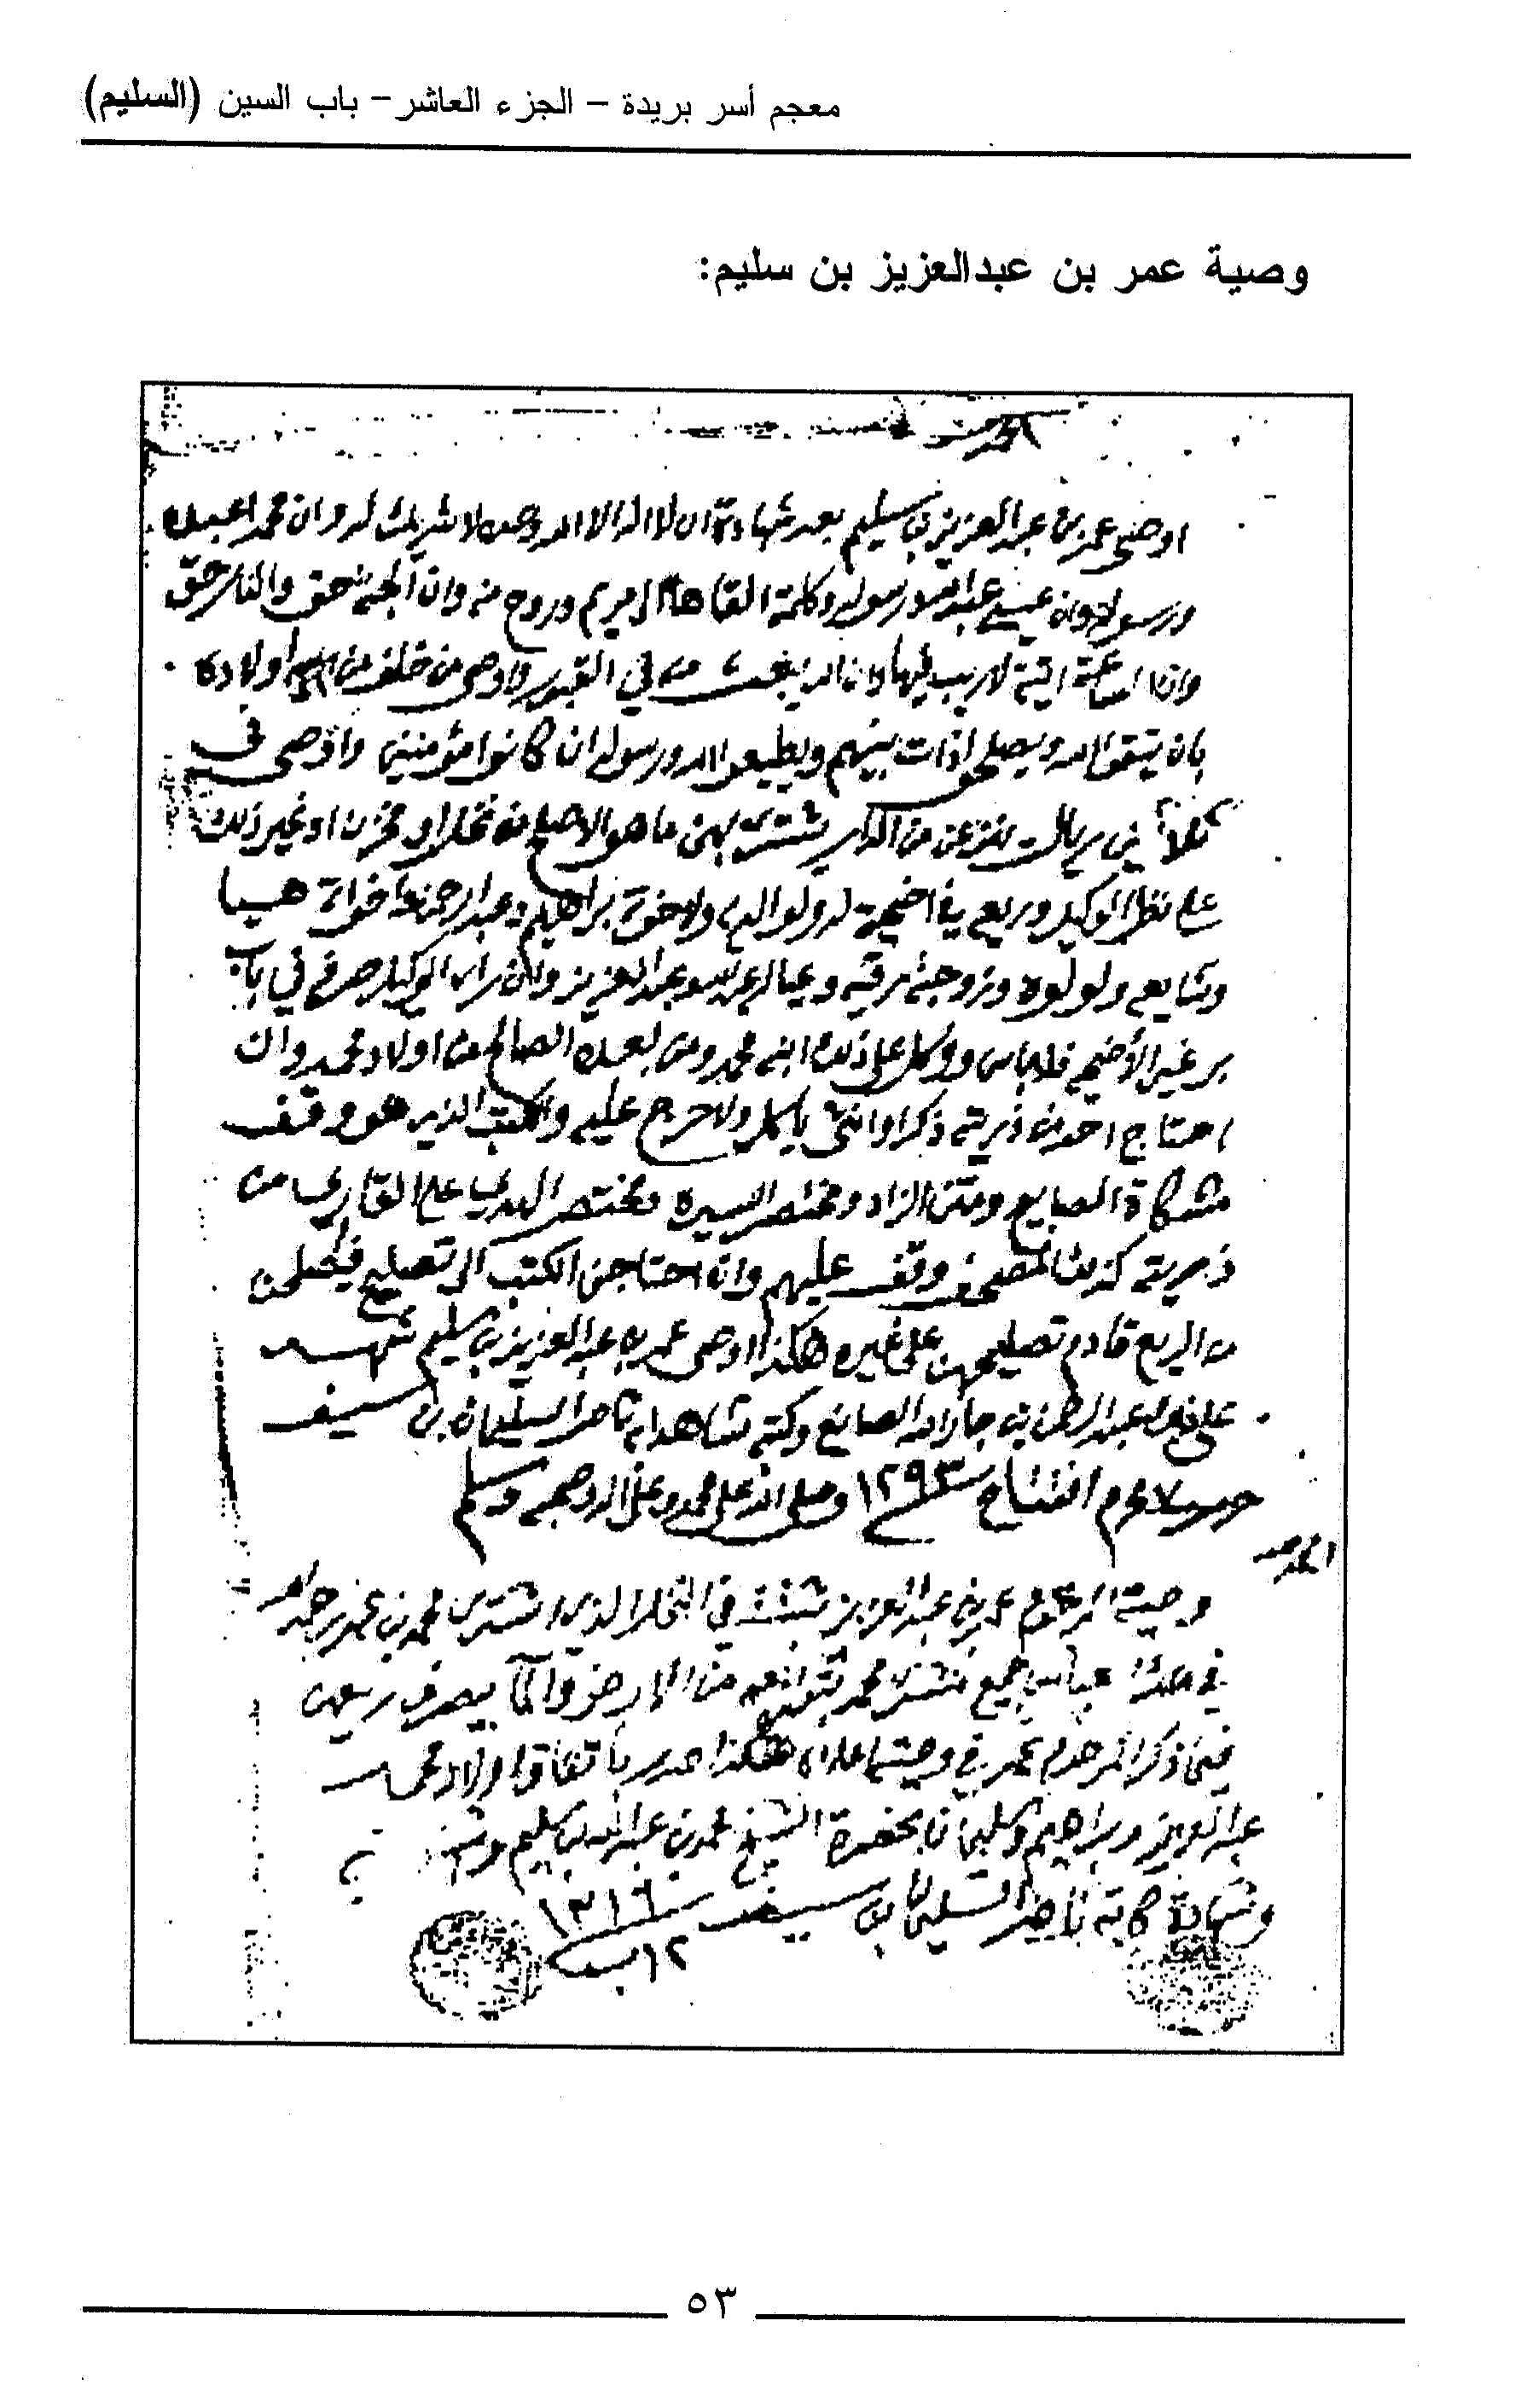 معجم أسر بريدة - الجزء العاشر - باب السين (السليم)
وصية عمر بن عبدالعزيز بن سليم:
الحمد لله
اوصى عمر بن عبد العزيز بن سليم بعد شهادة ان لا اله الا الله وحده لا شريك له وان محمد اعبده
ورسوله وان عيسى عبد الله ورسوله وكلمته القاها الى مريم وروح منه وان الجنة حق والنار حق
وان الساعة اتية لا ريب فيها وان الله يبعث من في القبور واوصى من خلف من اولاده
بان يتقوا الله ويصلحوا ذات بينهم ويطيعوا الله ورسوله ان كانوا مؤمنين واوصى في
ثلاثين ريال ينزعن من الدار يشترى بهن ما هو الاصلح من نخل او مخزن او غير ذلك
على نظر الوكيل وريعه في اضحية له ولوالديه ولاخوته براهيم وعبد الرحمن واخواته هيا
وشايعه ولولوه وزوجته رقيه وعياله عبد الله وعبد العزيز وان راى الوكيل صرفه في باب
بر غير الأضحية فلا باس واوكل على ذلك ابنه محمد ومن بعده الصالح من اولاد محمد وان
احتاج احد من ذريته ذكر او انثى ياكل ولا حرج عليه والكتب الذي هو وقف
مشكاة المصابيح ومتن الزاد ومختصر السيره ومختصر الهدي على القاري من
ذريته كذلك المصحف وقف عليهم وان احتاجن الكتب الى تصليح فيصلحن
من الريع قادم تصليحهن على غيره هكذا اوصى عمر بن عبد العزيز بن سليم شهد
على ذلك عبد الرحمن بن جار الله الصايغ وكتبه شاهدا به ناصر السليمان بن سيف
حرر ٧ محرم افتتاح سنة ١٢٩٣ وصلى الله على محمد وعلى اله وصحبه وسلم
الحمد لله
وصية المرحوم عمر بن عبد العزيز في النخل الذي اشترى محمد بن عمر
في جميع محمد من الارض والما يصرف ريعهن
فيما ذكر المرحوم عمر في وصيته اعلاه هكذا صدر باتفاق اولاد محمد
عبد العزيز وبراهيم وسليمان بحضرة الشيخ محمد بن عبد الله بن سليم
وشهادة كاتبه ناصر السليمان بن سيف سنة ١٣١٦
١٢ ب
٥٣